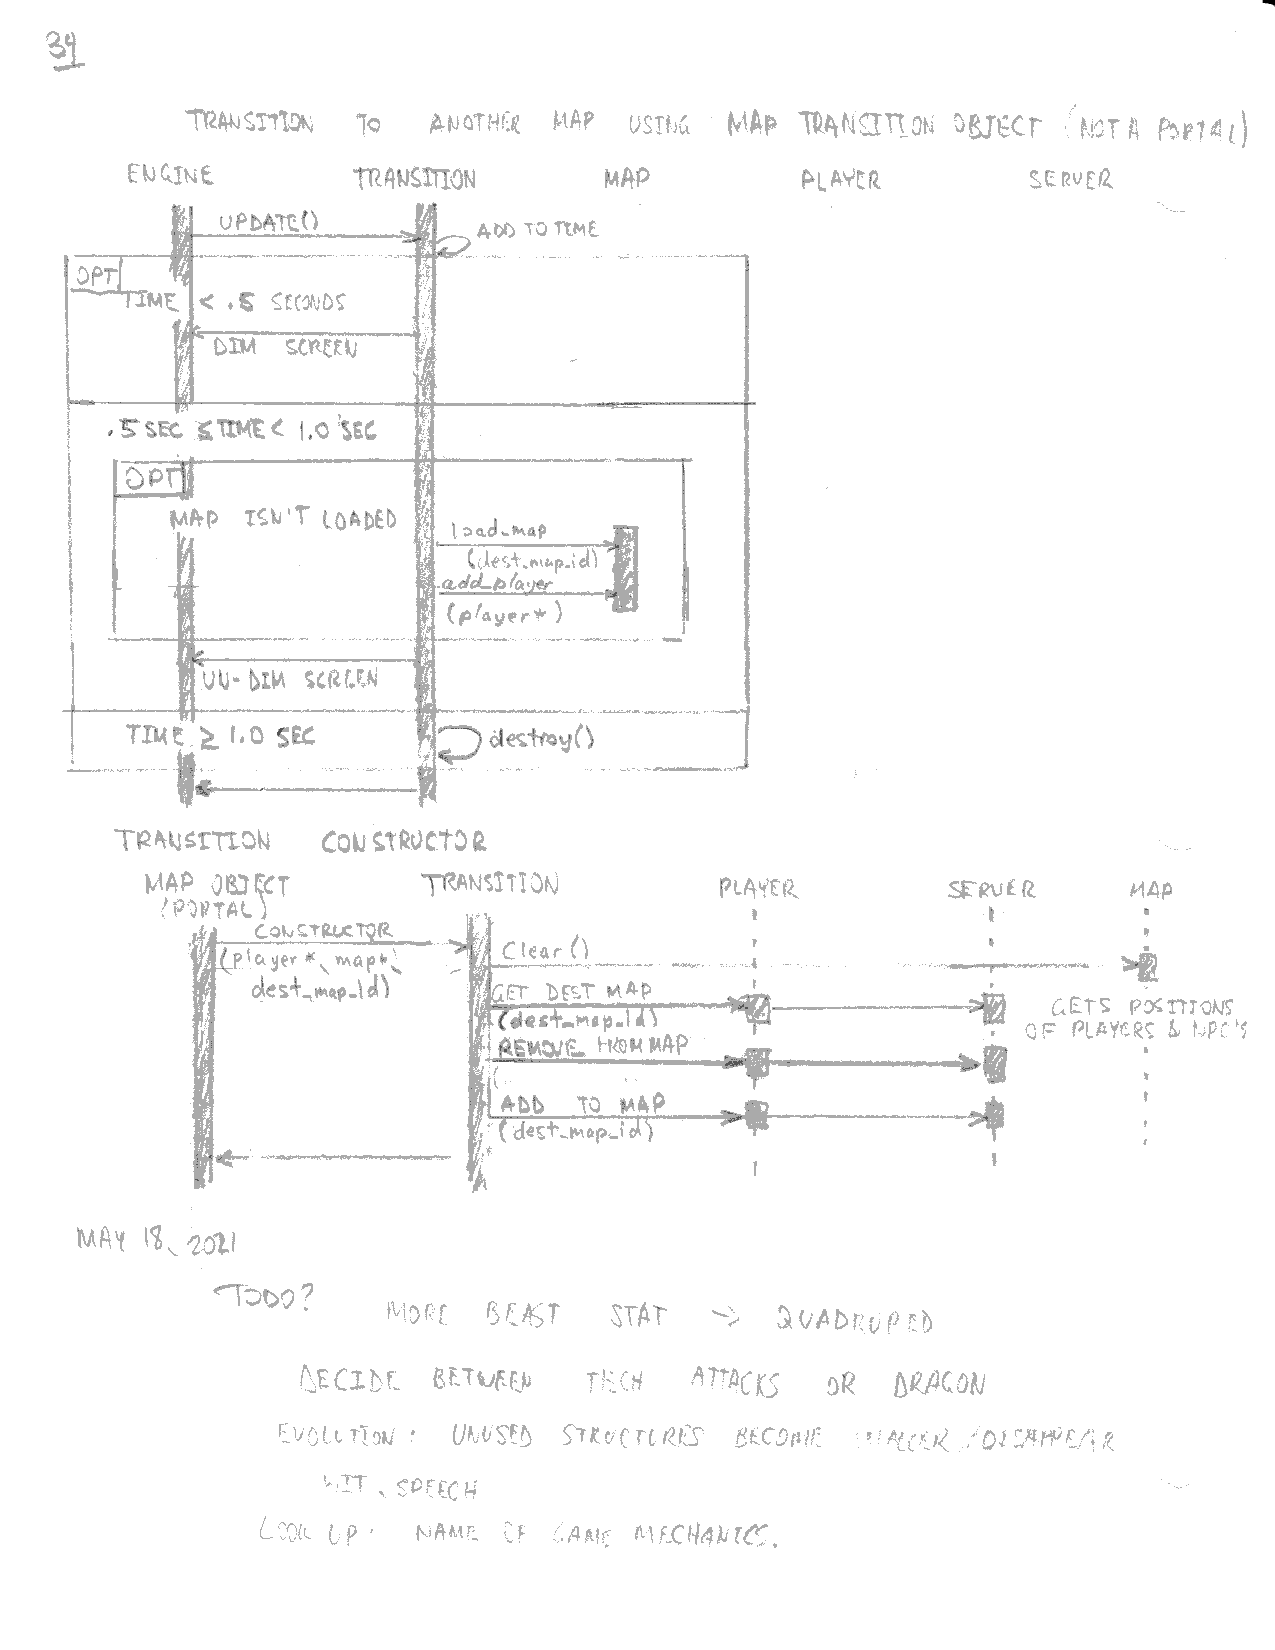 34
TRANSITION TO ANOTHER MAP USING MAP TRANSITION OBJECT (NOT A PORTAL)
ENGINE TRANSITION MAP PLAYER SERVER
UPDATE() ADD TO TIME
OPT
TIME < .5 SECONDS
DIM SCREEN
.5 SEC ≤ TIME < 1.0 SEC
OPT
MAP ISN'T LOADED
load_map
(dest_map_id)
add_player
(player*)
UN-DIM SCREEN
TIME ≥ 1.0 SEC destroy()
TRANSITION CONSTRUCTOR
MAP OBJECT TRANSITION PLAYER SERVER MAP
(PORTAL)
CONSTRUCTOR
(player*, map*,
dest_map_id)
Clear()
GET DEST MAP
(dest_map_id)
GETS POSITIONS
OF PLAYERS & NPC'S
REMOVE FROM MAP
ADD TO MAP
(dest_map_id)
MAY 18, 2021
TODO?
MORE BEAST STAT → QUADRUPED
DECIDE BETWEEN TECH ATTACKS OR DRAGON
EVOLUTION: UNUSED STRUCTURES BECOME SMALLER / DISAPPEAR
WIT, SPEECH
LOOK UP: NAME OF GAME MECHANICS.